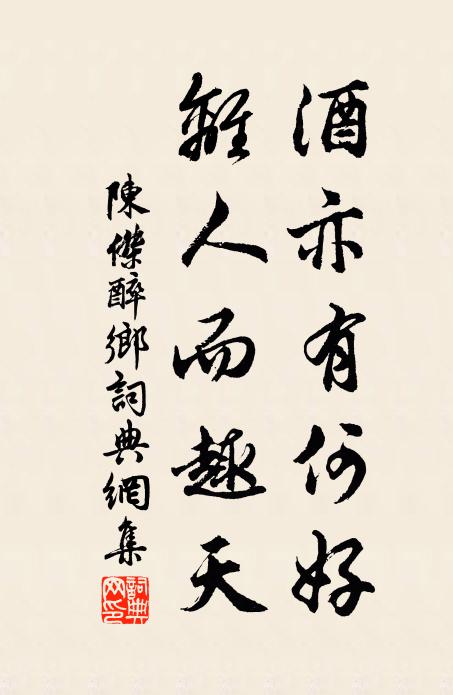 酒亦有何好
離人而趣天
陳傑醉鄉詞典網集
詞典网印